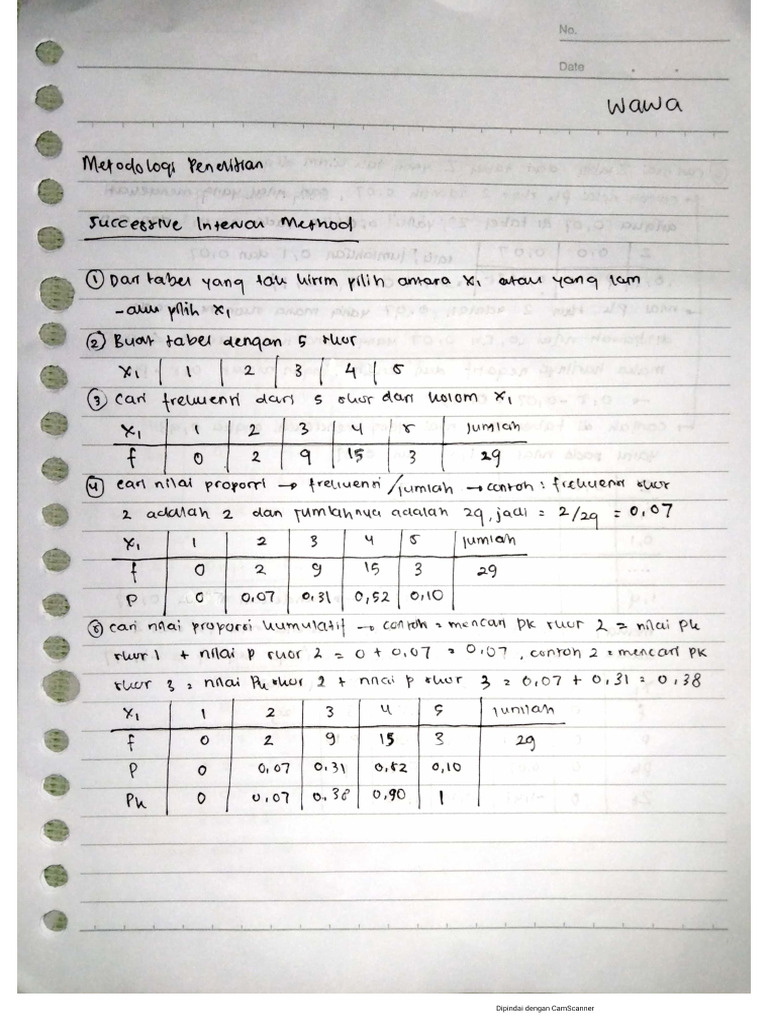 No.
Date
Wawa
Metodologi Penelitian
Successive Interval Method
① Dari tabel yang tak kirim pilih antara X₁ atau yang lain
- aku pilih X₁
② Buat tabel dengan 5 skor
X₁ | 1 | 2 | 3 | 4 | 5
③ Cari frekuensi dari 5 skor dari kolom X₁
X₁ | 1 | 2 | 3 | 4 | 5 | Jumlah
f | 0 | 2 | 9 | 15 | 3 | 29
④ cari nilai proporsi → frekuensi/jumlah → contoh : frekuensi skor
2 adalah 2 dan jumlahnya adalah 29, jadi = 2/29 = 0,07
X₁ | 1 | 2 | 3 | 4 | 5 | Jumlah
f | 0 | 2 | 9 | 15 | 3 | 29
P | 0 | 0,07 | 0,31 | 0,52 | 0,10
⑤ cari nilai proporsi kumulatif → contoh = mencari pk skor 2 = nilai pk
skor 1 + nilai p skor 2 = 0 + 0,07 = 0,07, contoh 2 = mencari pk
skor 3 = nilai Pk skor 2 + nilai p skor 3 = 0,07 + 0,31 = 0,38
X₁ | 1 | 2 | 3 | 4 | 5 | Jumlah
f | 0 | 2 | 9 | 15 | 3 | 29
P | 0 | 0,07 | 0,31 | 0,52 | 0,10
Pk | 0 | 0,07 | 0,38 | 0,90 | 1
Dipindai dengan CamScanner